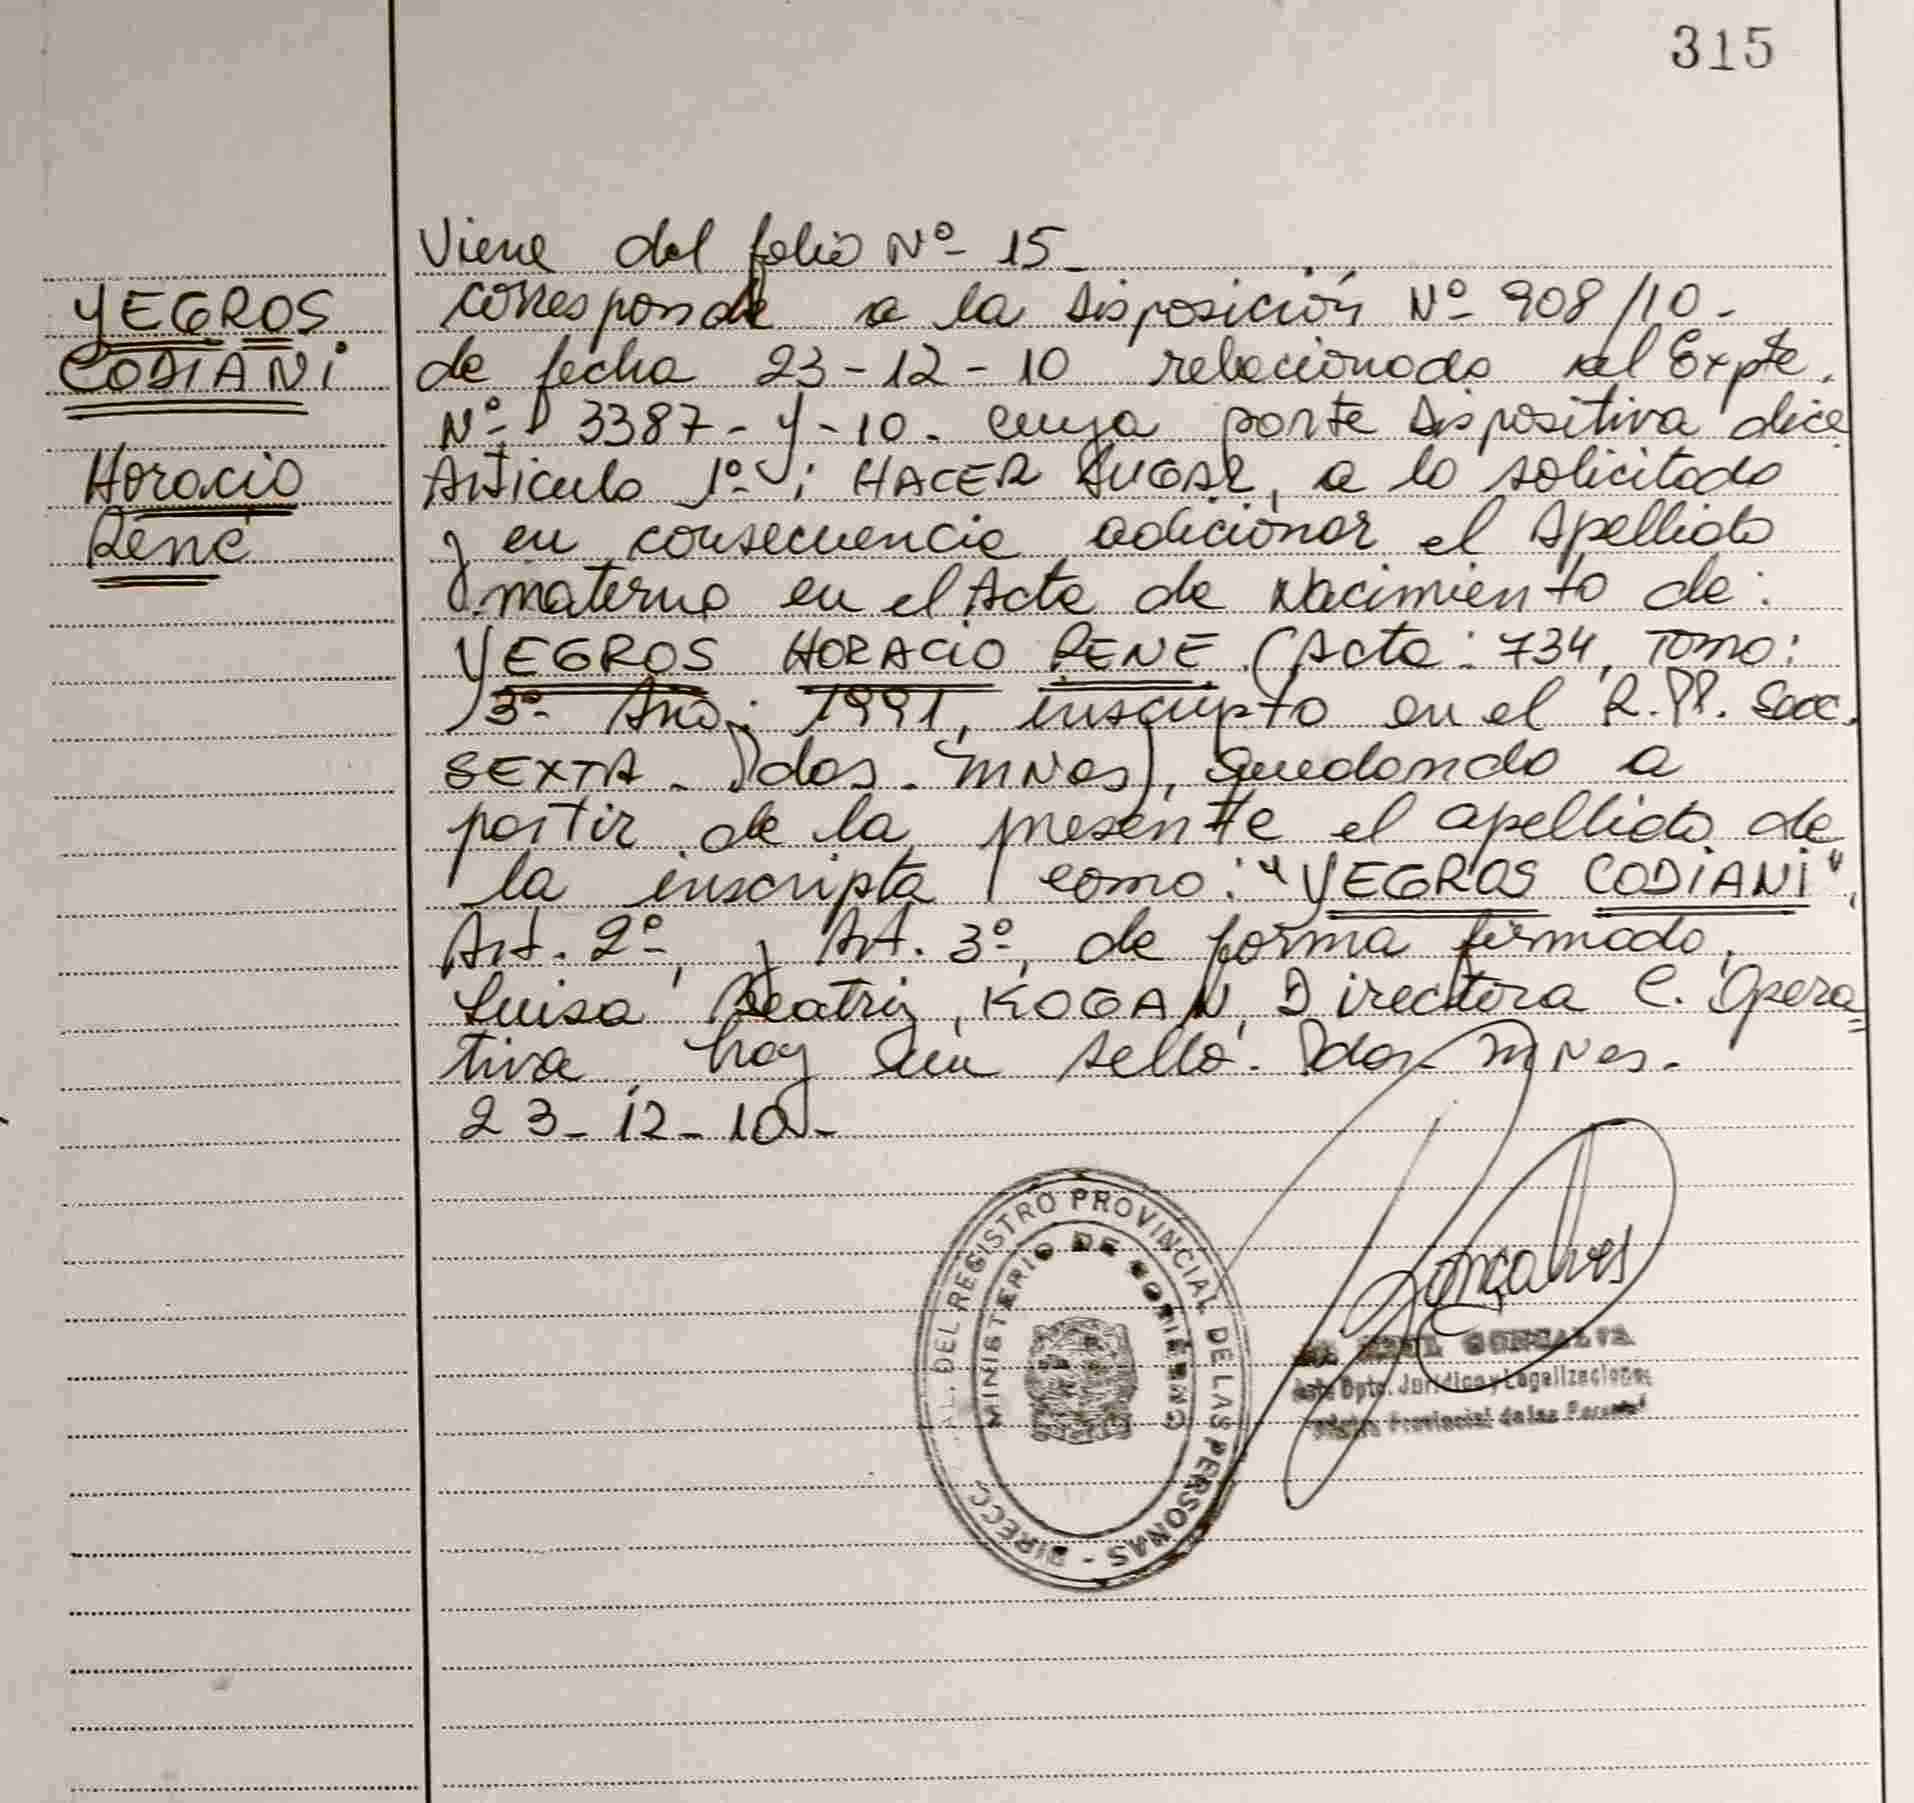 315
YEGROS
CODIANI
Horacio
René
Viene del folio Nº- 15-
corresponde a la disposición Nº- 908/10-
de fecha 23-12-10 relacionado al Expte.
Nº- 3387-Y-10. cuya parte dispositiva dice
Articulo 1º-: HACER LUGAR, a lo solicitado
y en consecuencia adicionar el Apellido
materno en el Acta de Nacimiento de:
YEGROS HORACIO RENE (Acta: 734, Tomo:
3º- Año: 1991, inscripto en el R.PP. Secc.
SEXTA- Pdas- MNes), quedando a
partir de la presente el apellido de
la inscripta como: "YEGROS CODIANI",
Art. 2º-, y Art. 3º, de forma firmado,
Luisa Beatriz, KOGAN, Directora C. Opera=
tiva, hay un sello. Pdas- MNes.
23-12-10-
DIRECC. DEL REGISTRO PROVINCIAL DE LAS PERSONAS -
MINISTERIO DE GOBIERNO
Gonçalves
Dpto. Jurídico y Legalizaciones
Provincial de las Personas